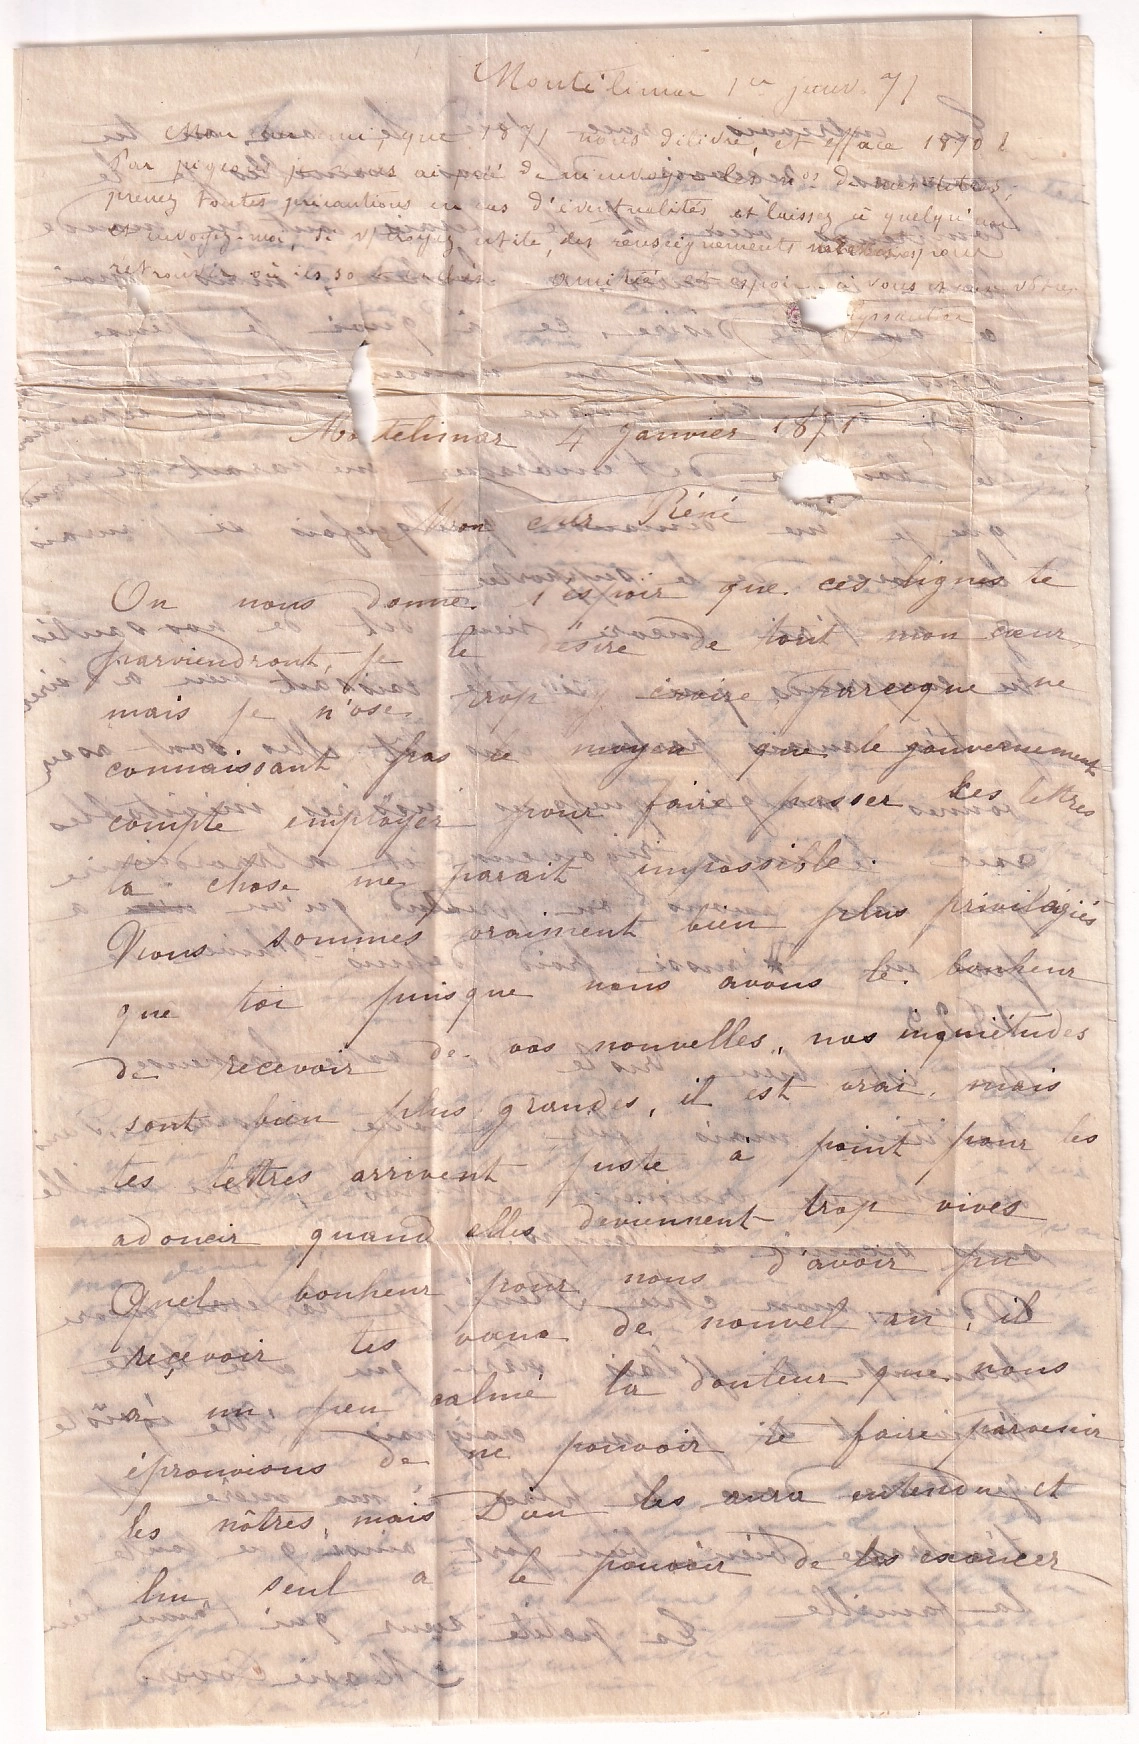 Montélimar 1er janv. 71
Mon cher ami, que 1871 nous délivre, et efface 1870 !
Par pigeon je vous ai prié de m'envoyer les nos de mes titres;
prenez toutes précautions en cas d'éventualités et laissez à quelqu'un
et envoyez-moi, si v/ croyez utile, des renseignements nécessaires pour
retrouver où ils so amitié et espoir à vous et aux vôtres
Montelimar 4 Janvier 1871
Mon cher Réné
On nous donne l'espoir que ces lignes te
parviendront, je le désire de tout mon cœur,
mais je n'ose trop y croire parceque ne
connaissant pas le moyen que le gouvernement
compte employer pour faire passer les lettres
la chose me parait impossible.
Nous sommes vraiment bien plus privilégiés
que toi puisque nous avons le bonheur
de recevoir de vos nouvelles, nos inquiétudes
sont bien plus grandes, il est vrai, mais
tes lettres arrivent juste à point pour les
adoucir quand elles deviennent trop vives
Quel bonheur pour nous d'avoir pu
reçevoir tes vœux de nouvel an, il
a un peu calmé la douleur que nous
éprouvions de ne pouvoir te faire parvenir
les nôtres, mais Dieu les aura entendu et
lui seul a le pouvoir de les exaucer